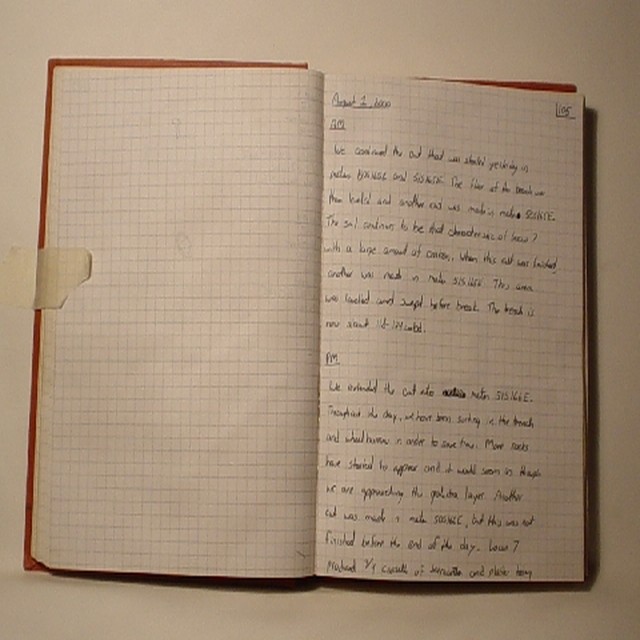 August 1, 2000
105
AM
We continued the cut that was started yesterday in
meters and S15/16E. The floor of the trench was
then leveled and another cut was made in meter
The soil continues to be that characteristic of locus 7
with a large amount of When this cut was finished,
another was made in meter S15/16E. This area
was leveled and swept before break. The trench is
now about
PM
We extended the cut into meter S15/16E.
Throughout the day, we have been sorting in the trench
and wheelbarrow in order to save time. More rocks
have started to appear and it would seem as though
we are approaching the layer. Another
cut was made in meter but this was not
finished before the end of the day. Locus 7
produced of and plaster being